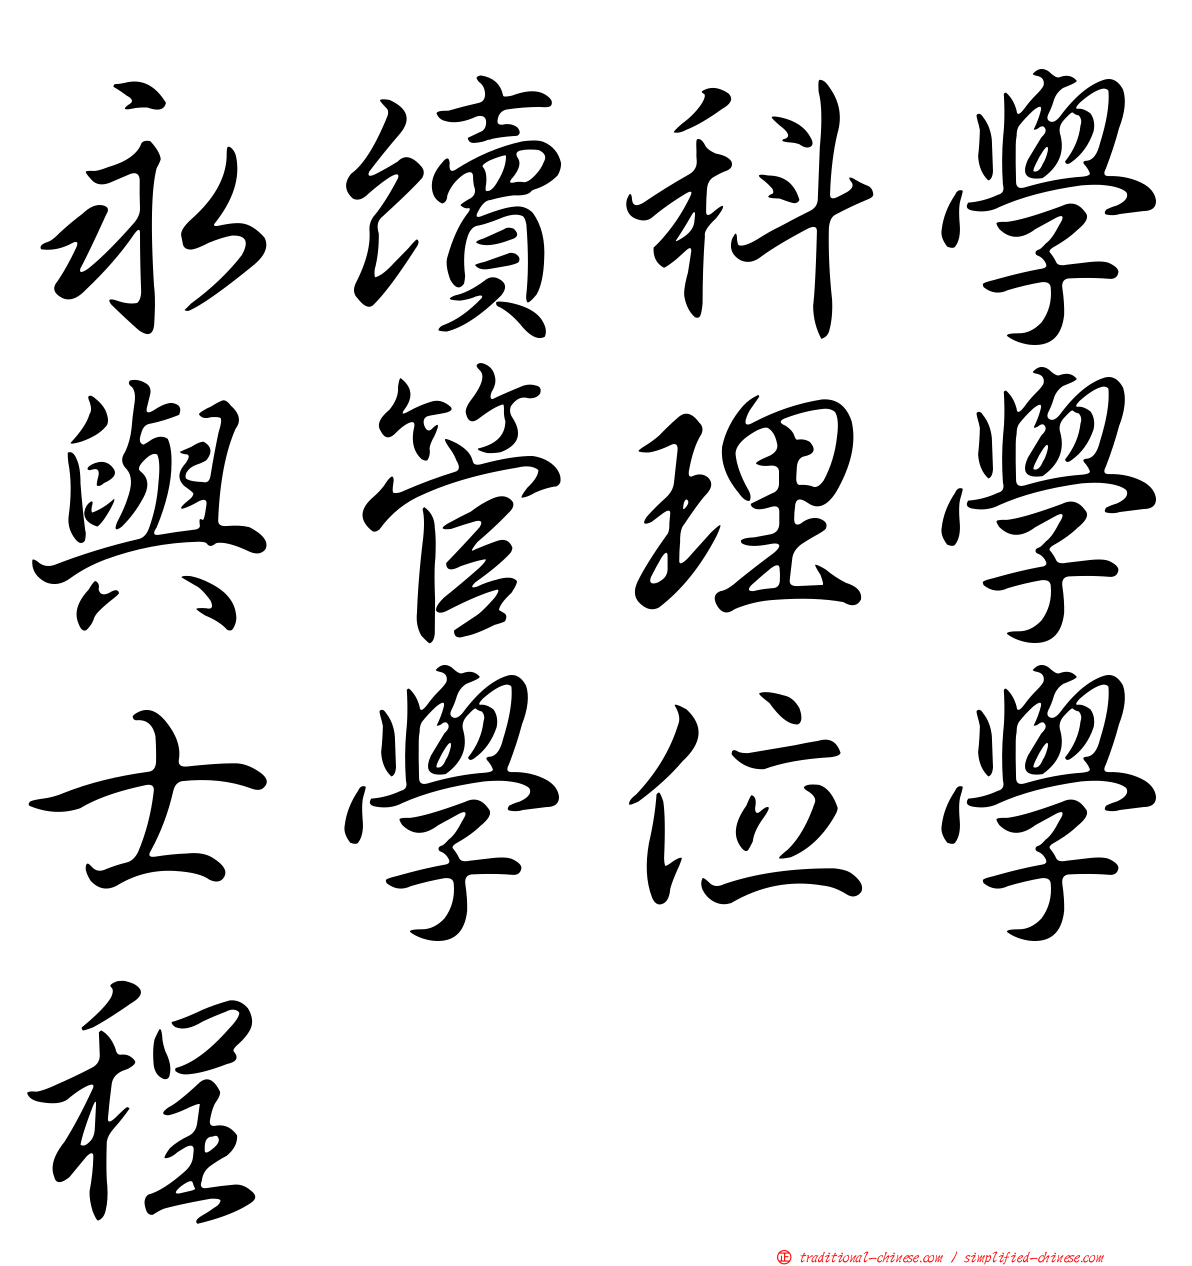 永續科學
與管理學
士學位學
程
正 traditional-chinese.com / simplified-chinese.com